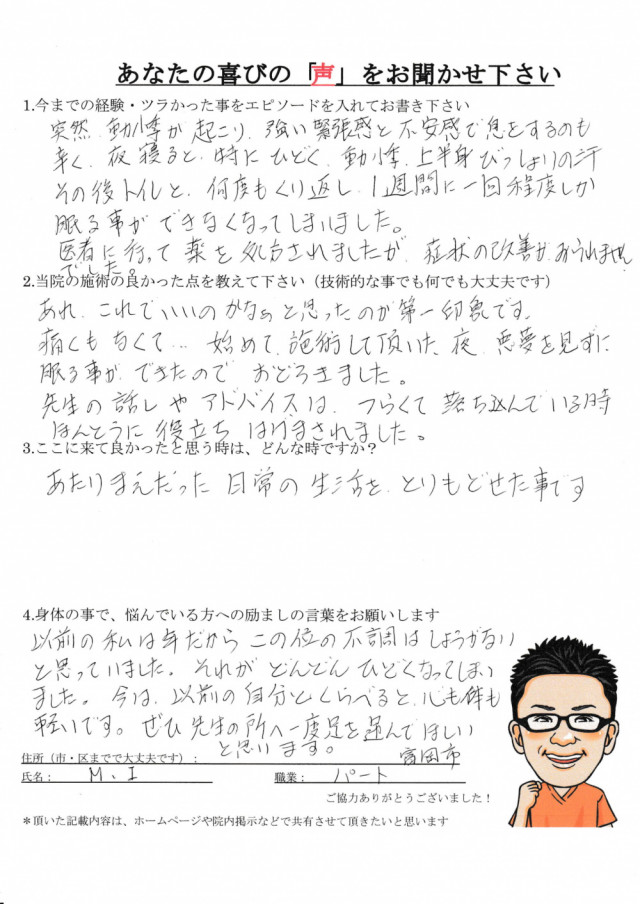 あなたの喜びの「声」をお聞かせ下さい
1.今までの経験・ツラかった事をエピソードを入れてお書き下さい
突然、動悸が起こり、強い緊張感と不安感で息をするのも
辛く、夜寝ると、特にひどく、動悸、上半身びっしょりの汗
その後トイレと、何度もくり返し、1週間に一回程度しか
眠る事ができなくなってしまいました。
医者に行って薬を処方されましたが、症状の改善がみられません
でした。
2.当院の施術の良かった点を教えて下さい（技術的な事でも何でも大丈夫です）
あれ、これでいいのかなぁと思ったのが第一印象です。
痛くもなくて… 始めて、施術して頂いた、夜、悪夢を見ずに
眠る事が、できたので おどろきました。
先生の話しやアドバイスは、つらくて落ち込んでいる時
ほんとうに役立ち はげまされました。
3.ここに来て良かったと思う時は、どんな時ですか？
あたりまえだった日常の生活を、とりもどせた事です
4.身体の事で、悩んでいる方への励ましの言葉をお願いします
以前の私は年だから この位の不調はしょうがない
と思っていました。それが どんどん ひどくなってしまい
ました。今は、以前の自分とくらべると、心も体も
軽いです。ぜひ先生の所へ一度足を運んでほしい
と思います。
住所（市・区までで大丈夫です）： 富岡市
氏名： M.I 職業： パート
ご協力ありがとうございました！
＊頂いた記載内容は、ホームページや院内掲示などで共有させて頂きたいと思います